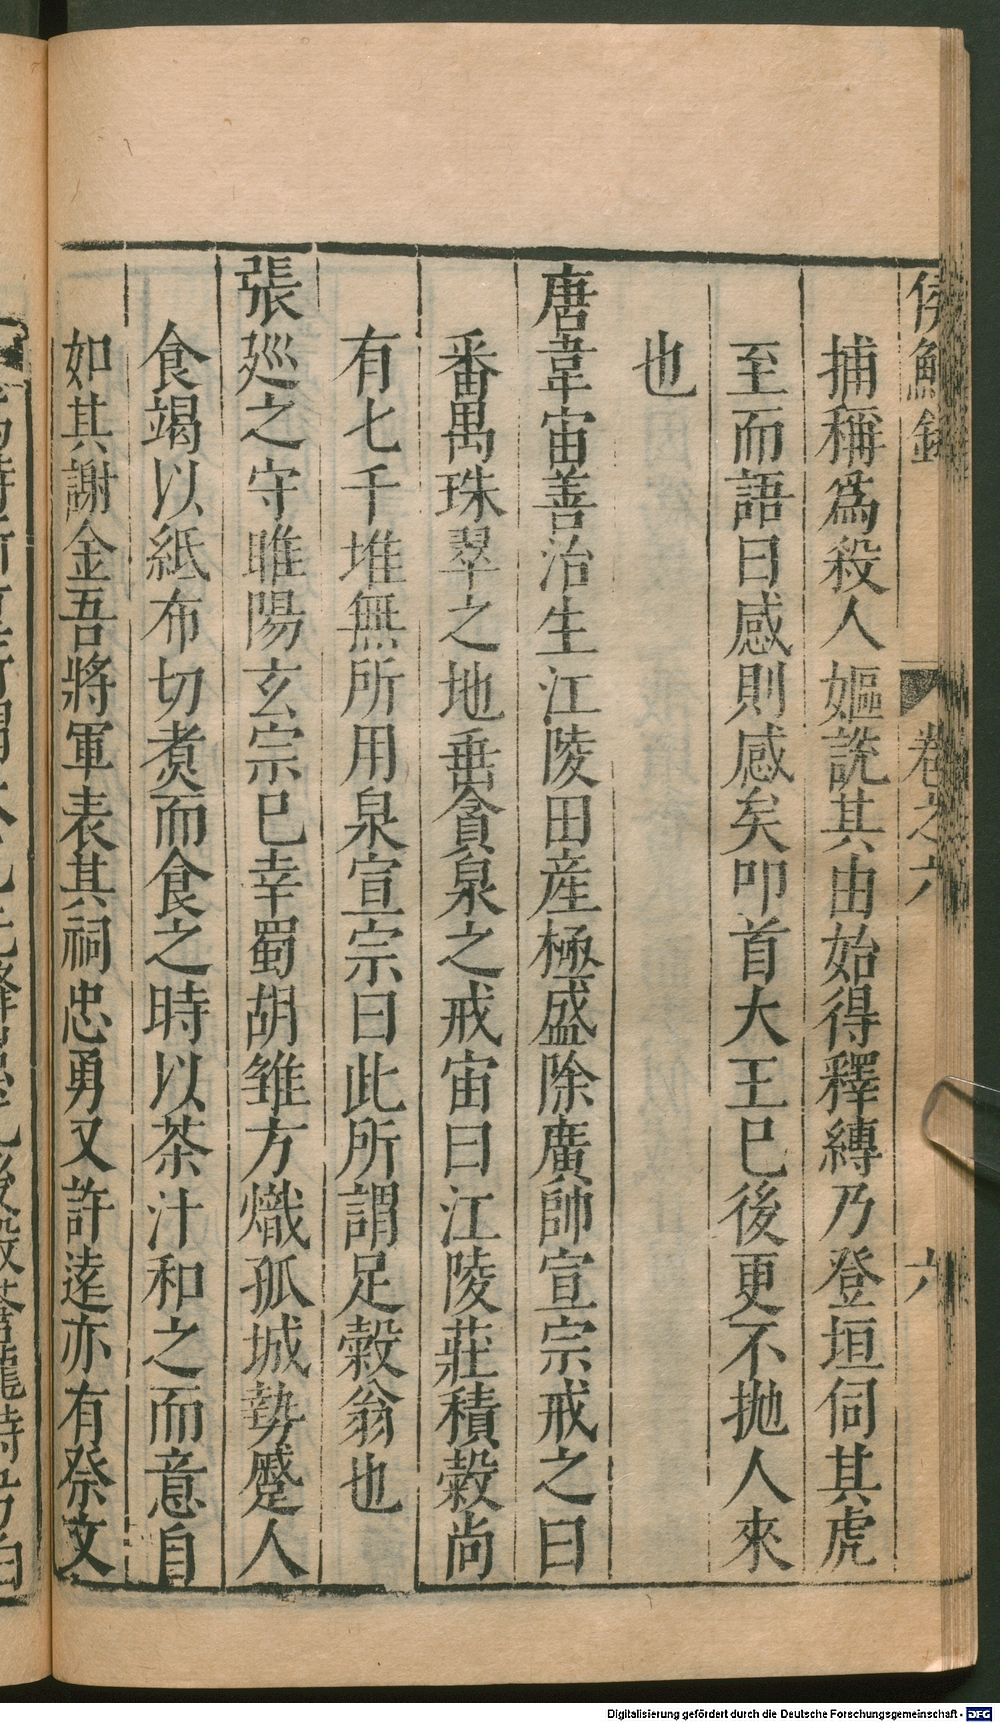 侯鯖錄 卷之六 六
捕稱爲殺人嫗說其由始得釋縛乃登垣伺其虎
至而語曰感則感矣叩首大王已後更不拋人來
也
唐韋宙善治生江陵田産極盛除廣帥宣宗戒之曰
番禺珠翠之地垂貪泉之戒宙曰江陵莊積穀尚
有七千堆無所用泉宣宗曰此所謂足穀翁也
張廵之守睢陽玄宗已幸蜀胡雏方熾孤城勢蹙人
食竭以紙布切煑而食之時以茶汁和之而意自
如其謝金吾將軍表其祠忠勇又許遠亦有祭文
Digitalisierung gefördert durch die Deutsche Forschungsgemeinschaft - DFG